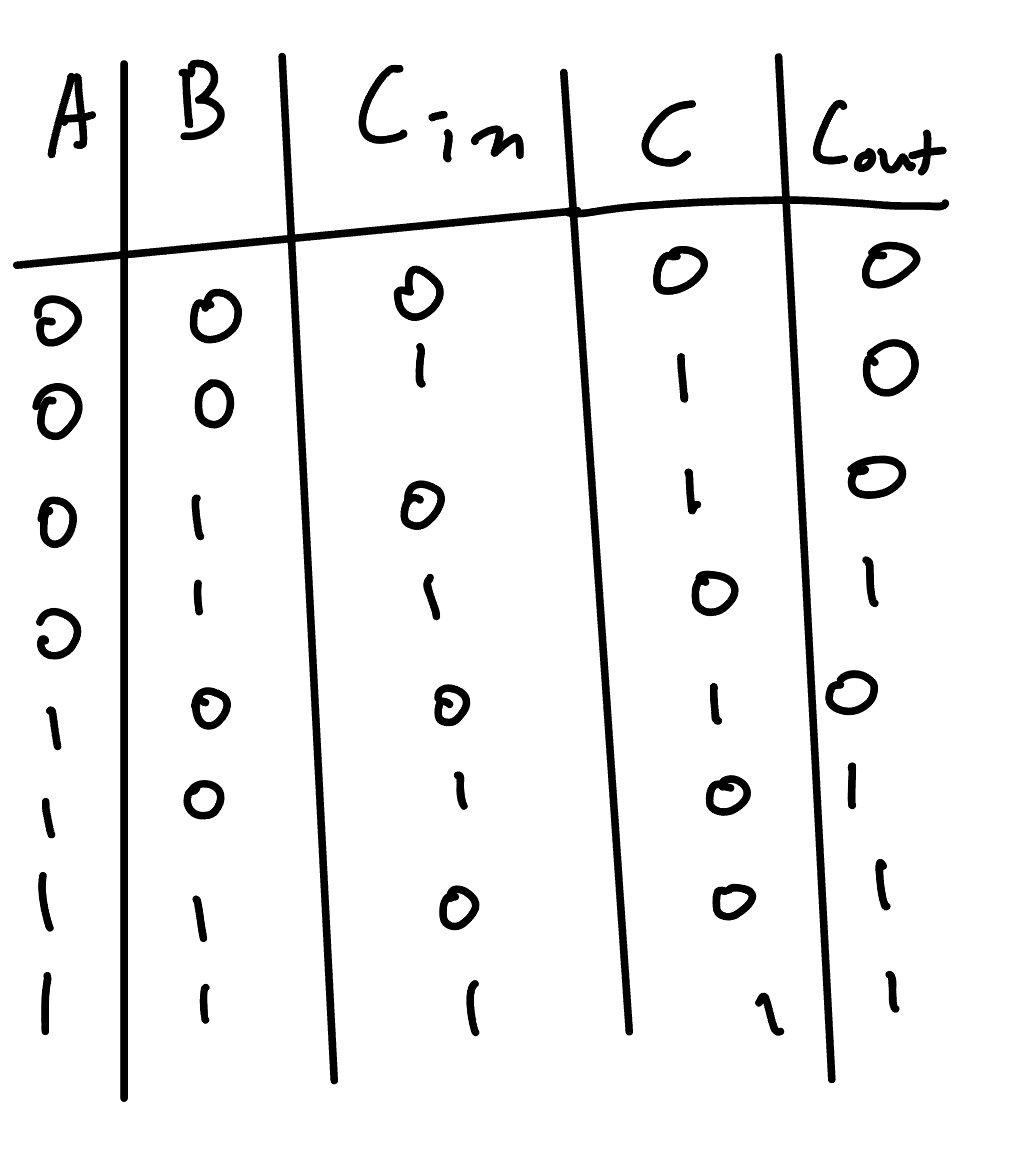 A B Cin C Cout
0 0 0 0 0
0 0 1 1 0
0 1 0 1 0
0 1 1 0 1
1 0 0 1 0
1 0 1 0 1
1 1 0 0 1
1 1 1 1 1